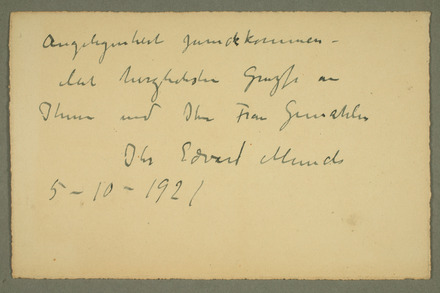 Angelegenheit zurückkommen –
Mit herzlichsten Grüsse an
Ihnen und Ihr Frau Gemahlin
Ihr Edvard Munch
5 – 10 – 1921